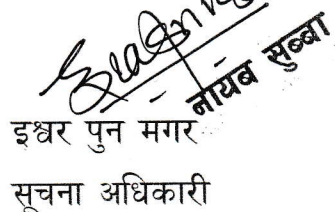 नायब सुब्बा
इश्वर पुन मगर
सूचना अधिकारी